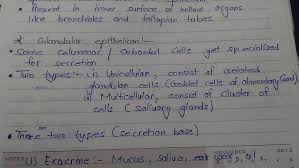 • Present in inner surface of hollow organs
like bronchioles and fallopian tubes
* Glandular epithelium :-
• Some columnar / Cuboidal Cells get specialised
for secretion
• Two types :- i) Unicellular, consist of isolated
glandular cells (Goblet cells of alimentary Canal)
ii) Multicellular, consist of cluster of
cells (salivary glands)
• There two types (secretion base)
NOTES
NOVEMBER
i) Exocrine :- Mucus, saliva, ear wax, oil,